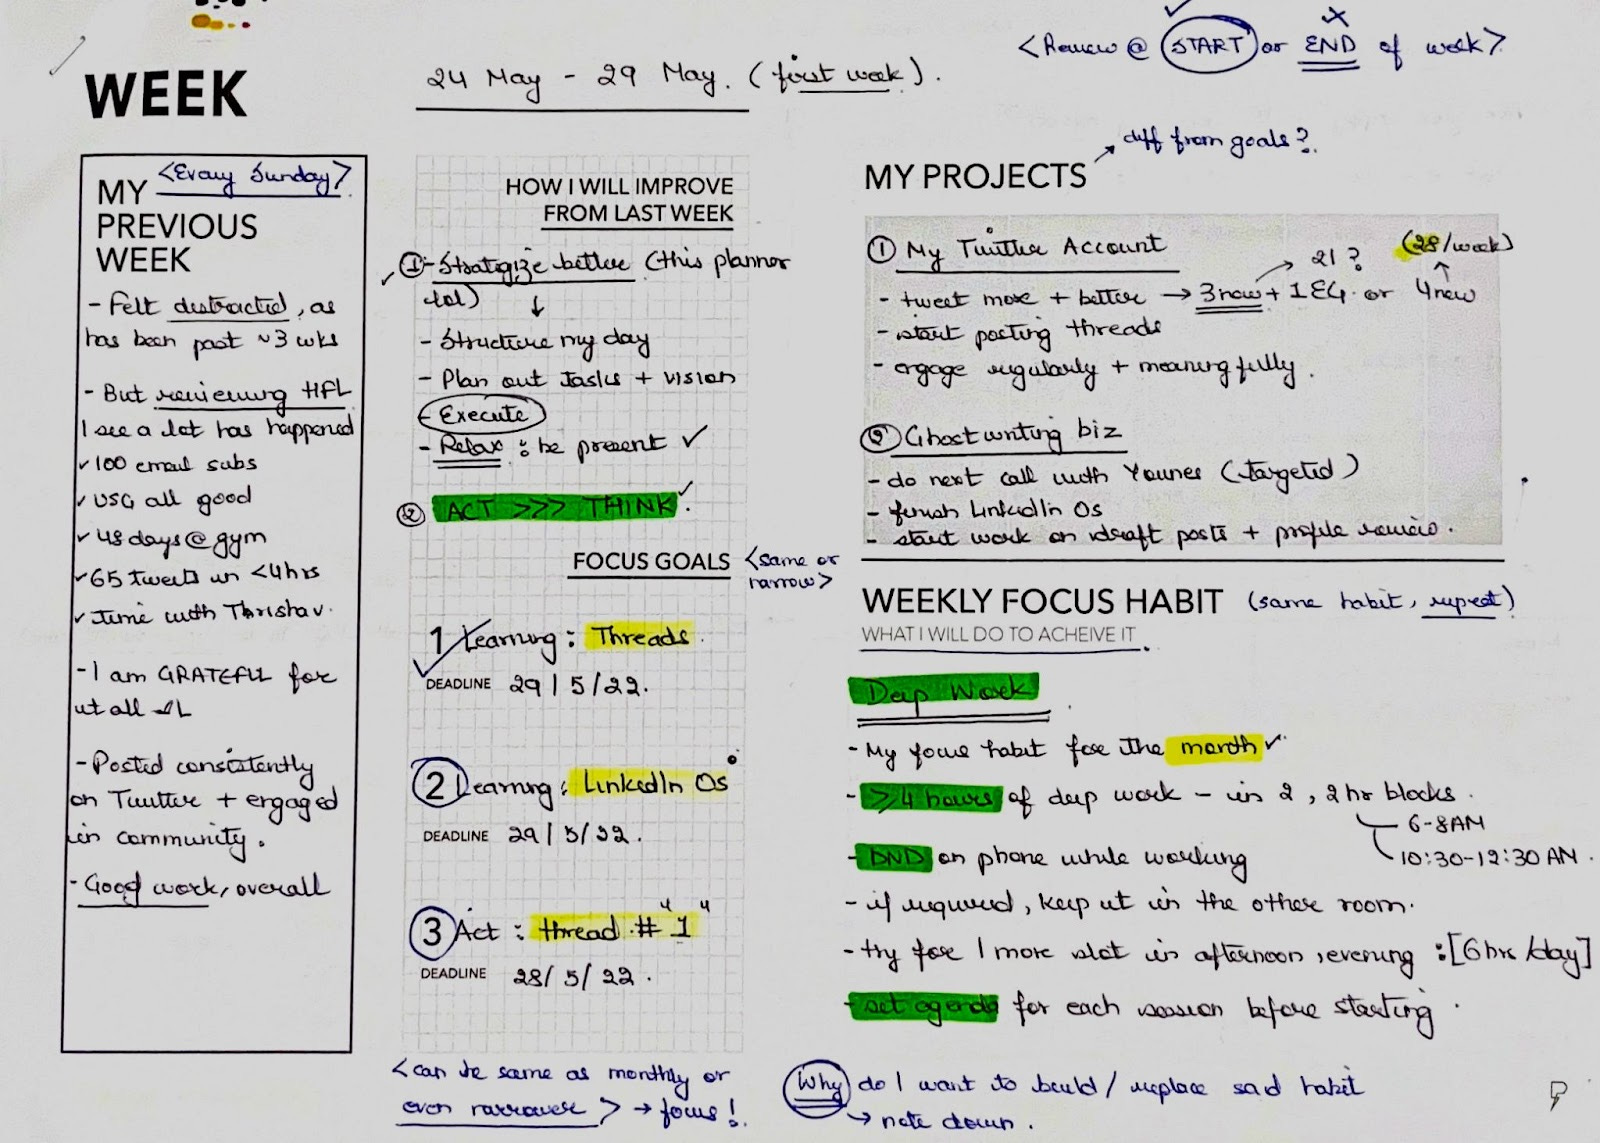 <Review @ START or END of week>
WEEK
24 May - 29 May. (first week).
<Every Sunday>
MY
PREVIOUS
WEEK
- Felt distracted, as
has been past ~3 wks
- But reviewing HFL
I see a lot has happened
✓ 100 email subs
✓ USG all good
✓ 48 days @ gym
✓ 65 tweets in <4hrs
✓ Time with Thrishav.
- I am GRATEFUL for
it all
- Posted consistently
on Twitter + engaged
in community.
- Good work, overall
HOW I WILL IMPROVE
FROM LAST WEEK
① - Strategize better (this planner
lol)
↓
- Structure my day
- Plan out tasks + vision
- Execute
- Relax : be present ✓
② ACT >>> THINK ✓.
FOCUS GOALS <same or
narrow>
1 Learning : Threads.
DEADLINE 29/5/22.
2 Learning : LinkedIn Os
DEADLINE 29/5/22.
3 Act : thread # "1"
DEADLINE 28/5/22.
<can be same as monthly or
even narrower> → focus!
MY PROJECTS → diff from goals?
① My Twitter Account
→ 21 ? (28/week)
- tweet more + better → 3 new + 1 EG. or 4 new
- start posting threads
- engage regularly + meaningfully.
② Ghostwriting biz
- do next call with Younes (targeted)
- finish LinkedIn Os
- start work on draft posts + profile review.
WEEKLY FOCUS HABIT (same habit, repeat)
WHAT I WILL DO TO ACHEIVE IT.
Deep Work
- My focus habit for the month ✓
- ≥4 hours of deep work - in 2, 2 hr blocks.
6-8AM
- DND on phone while working
10:30-12:30 AN.
- if required, keep it in the other room.
- try for 1 more slot in afternoon, evening : [6 hrs/day]
- set agenda for each session before starting.
Why do I want to build / replace said habit
→ note down.